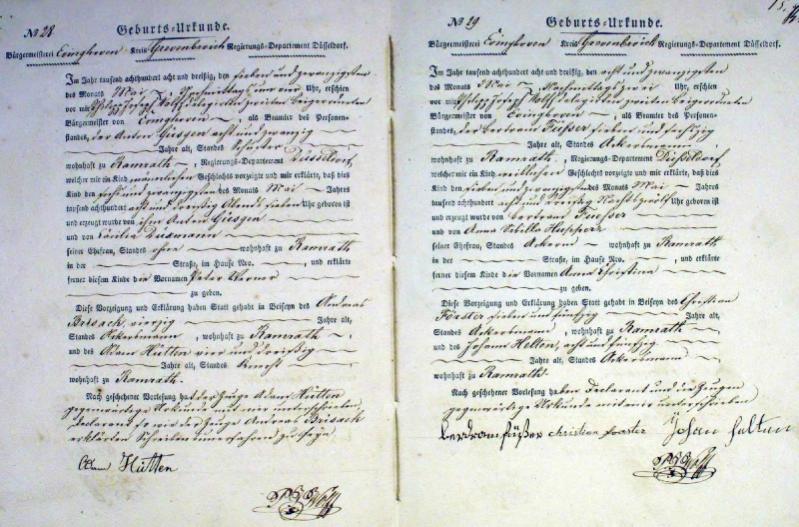 No 28 Geburts-Urkunde.
Bürgermeisterei Evinghoven Kreis Grevenbroich Regierungs-Departement Düsseldorf.
Im Jahr tausend achthundert acht und dreißig, den sieben und zwanzigsten
des Monats Mai, Nachmittags Uhr, erschien
vor mir Joseph Wolff zweiten Beigeordneten
Bürgermeister von Evinghoven, als Beamter des Personen-
standes, der Anton Giesgen acht und zwanzig
Jahre alt, Standes Schuster
wohnhaft zu Ramrath, Regierungs-Departement Düsseldorf,
welcher mir ein Kind männlichen Geschlechts vorzeigte und mir erklärte, daß dies
Kind den sechs und zwanzigsten des Monats Mai Jahres
tausend achthundert acht und dreißig Abends sieben Uhr geboren ist
und erzeugt wurde von ihm Anton Giesgen
und von Cäcilia
seiner Ehefrau, Standes ohne wohnhaft zu Ramrath
in der Straße, im Hause Nro. und erklärte
ferner diesem Kinde die Vornamen Peter Werner
zu geben.
Diese Vorzeigung und Erklärung haben Statt gehabt in Beiseyn des Andreas
Brisach, vierzig Jahre alt,
Standes Ackersmann, wohnhaft zu Ramrath
und des Adam Hütten vier und dreißig
Jahre alt, Standes Knecht
wohnhaft zu Ramrath.
Nach geschehener Vorlesung hat der Zeuge Adam Hütten
gegenwärtige Urkunde mit mir unterschrieben,
Declarant so wie der Zeuge Andreas Brisach
erklärten Schreibens unerfahren zu seyn
Adam Hütten
No 29 Geburts-Urkunde.
Bürgermeisterei Evinghoven Kreis Grevenbroich Regierungs-Departement Düsseldorf.
Im Jahr tausend achthundert acht und dreißig, den acht und zwanzigsten
des Monats Mai, Nachmittags zwei Uhr, erschien
vor mir Joseph Wolff zweiten Beigeordneten
Bürgermeister von Evinghoven, als Beamter des Personen-
standes, der Bertram Fuesser sieben und
Jahre alt, Standes Ackersmann
wohnhaft zu Ramrath, Regierungs-Departement Düsseldorf,
welcher mir ein Kind weiblichen Geschlechts vorzeigte und mir erklärte, daß dies
Kind den sieben und zwanzigsten des Monats Mai Jahres
tausend achthundert acht und dreißig Nachts zwölf Uhr geboren ist
und erzeugt wurde von Bertram Fuesser
und von Anna Sibilla
seiner Ehefrau, Standes Ackerin wohnhaft zu Ramrath
in der Straße, im Hause Nro. und erklärte
ferner diesem Kinde die Vornamen Anna Christina
zu geben.
Diese Vorzeigung und Erklärung haben Statt gehabt in Beiseyn des Christian
Förster sieben und fünfzig Jahre alt,
Standes Ackersmann, wohnhaft zu Ramrath
und des Johann Holten, acht und fünfzig
Jahre alt, Standes Ackersmann
wohnhaft zu Ramrath.
Nach geschehener Vorlesung haben Declarant und die Zeugen
gegenwärtige Urkunde mit mir unterschrieben
berdram füßer christian forster Johan